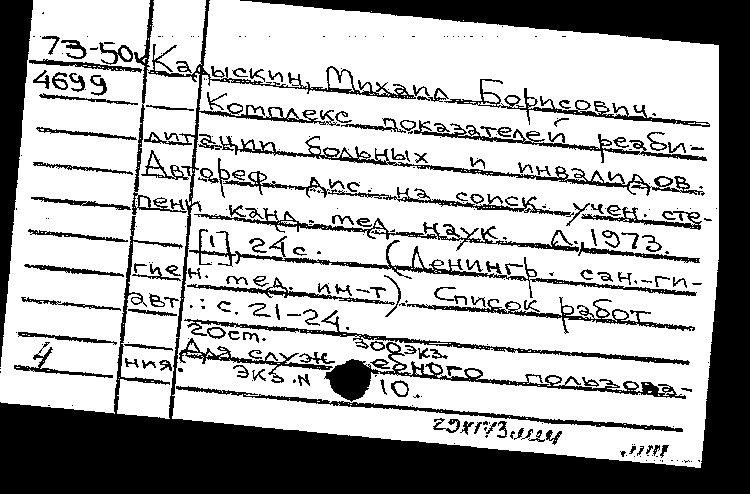 73-50к Кадыскин, Михаил Борисович.
4699 Комплекс показателей реаби-
литации больных и инвалидов.
Автореф. дис. на соиск. учен. сте-
пени канд. мед. наук. Л., 1973.
[1], 24с. (Ленингр. сан.-ги-
гиен. мед. ин-т). Список работ
авт.: с. 21-24.
20ст. 300экз.
4 Для служебного пользова-
ния. Экз. N 10.
29X173